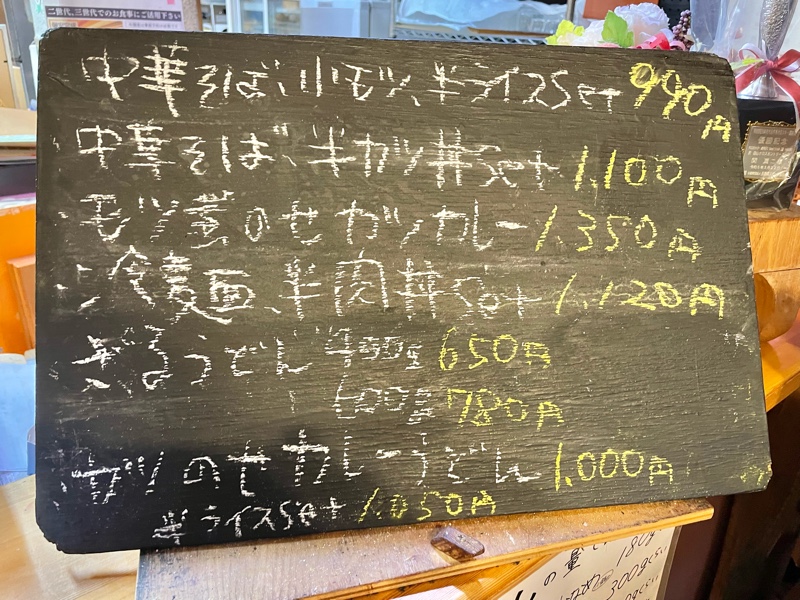 二世代、三世代でのお食事にご活用下さい
中華そば、小モツ、半ライスSet 990円
中華そば、半カツ丼Set 1,100円
モツ煮のせカツカレー 1,350円
冷麺、半肉丼Set 1,120円
ざるうどん 400g 650円
600g 780円
カツのせカレーうどん 1,000円
半ライスSet 1,050円
の量
180g
300g